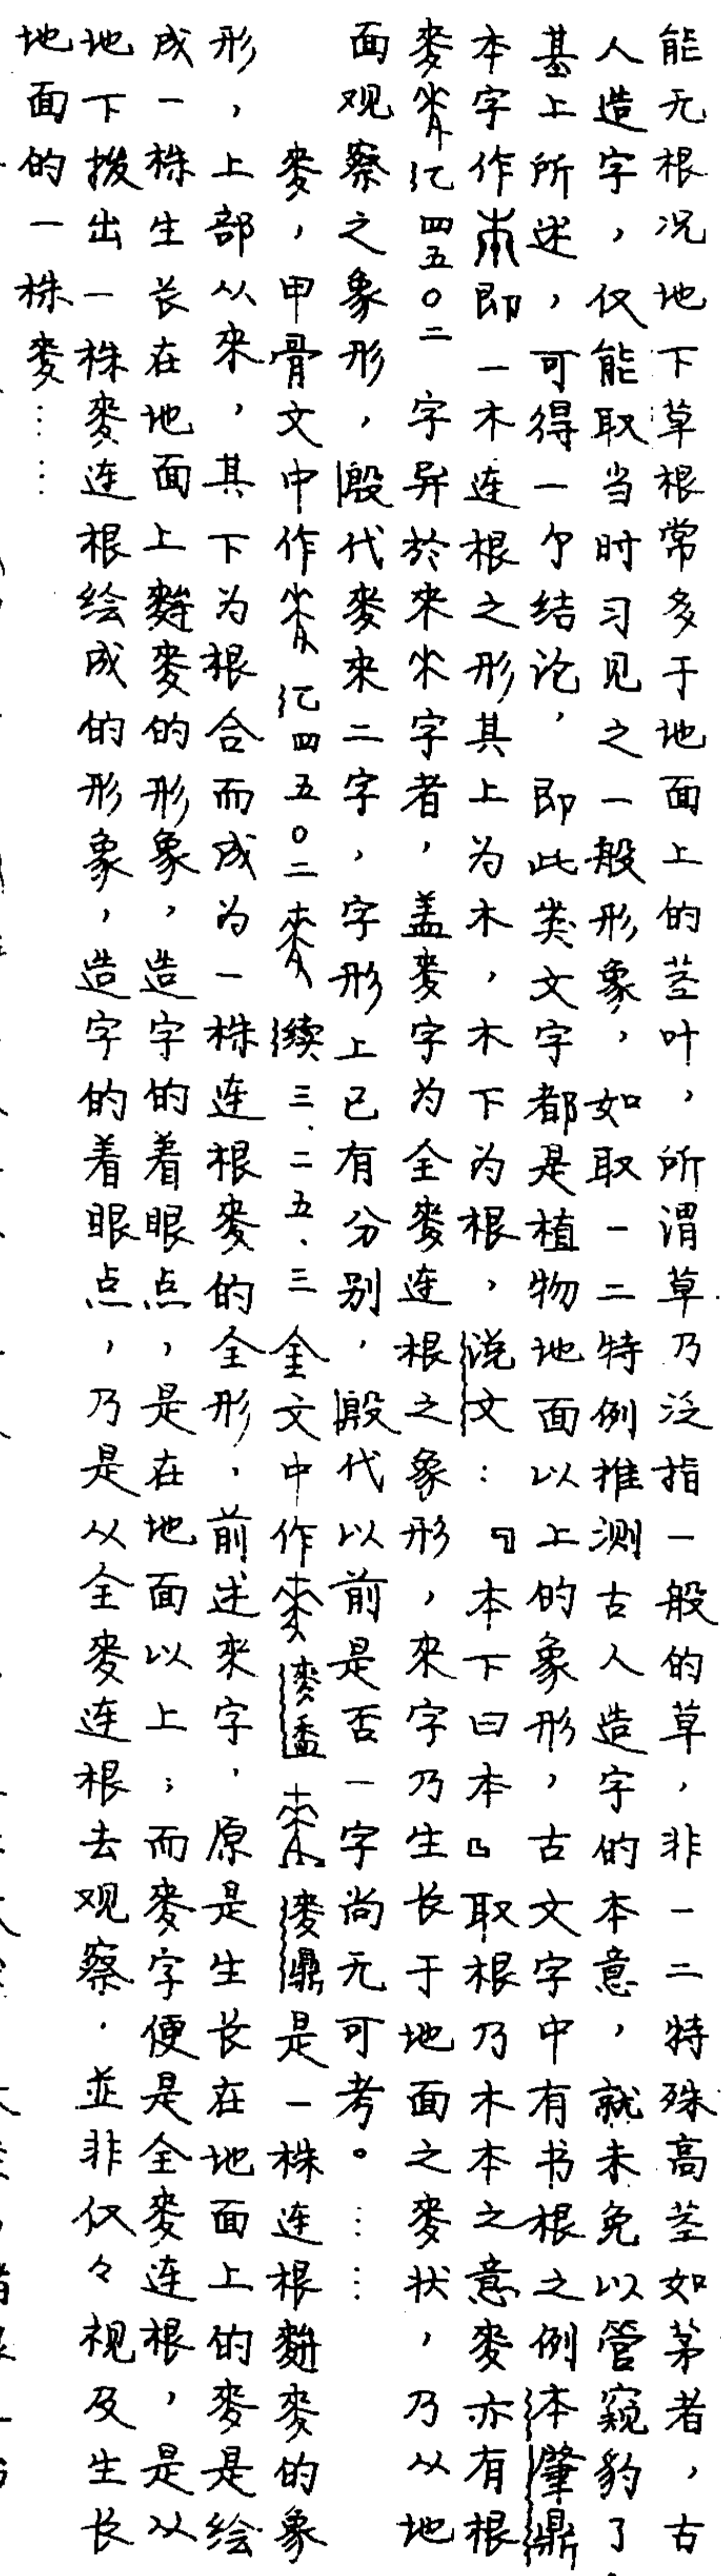 能无根况地下草根常多于地面上的茎叶，所谓草乃泛指一般的草，非一二特殊高茎如茅者，古
人造字，仅能取当时习见之一般形象，如取一二特例推测古人造字的本意，就未免以管窥豹了
基上所述，可得一个结论，即此类文字都是植物地面以上的象形，古文字中有书根之例本肇鼎
本字作即一木连根之形其上为木，木下为根，说文：『本下曰本』取根乃木本之意麥亦有根
麥㲋四五〇二字异於來字者，盖麥字为全麥连根之象形，來字乃生长于地面之麥状，乃从地
面观察之象形，殷代麥來二字，字形上已有分别，殷代以前是否一字尚无可考。……
麥，甲骨文中作四五〇二续三．二五．三金文中作麥盉麥鼎是一株连根麰麥的象
形，上部从來，其下为根合而成为一株连根麥的全形，前述來字，原是生长在地面上的麥是绘
成一株生长在地面上麰麥的形象，造字的着眼点，是在地面以上；而麥字便是全麥连根，是从
地下拨出一株麥连根绘成的形象，造字的着眼点，乃是从全麥连根去观察．並非仅々视及生长
地面的一株麥……